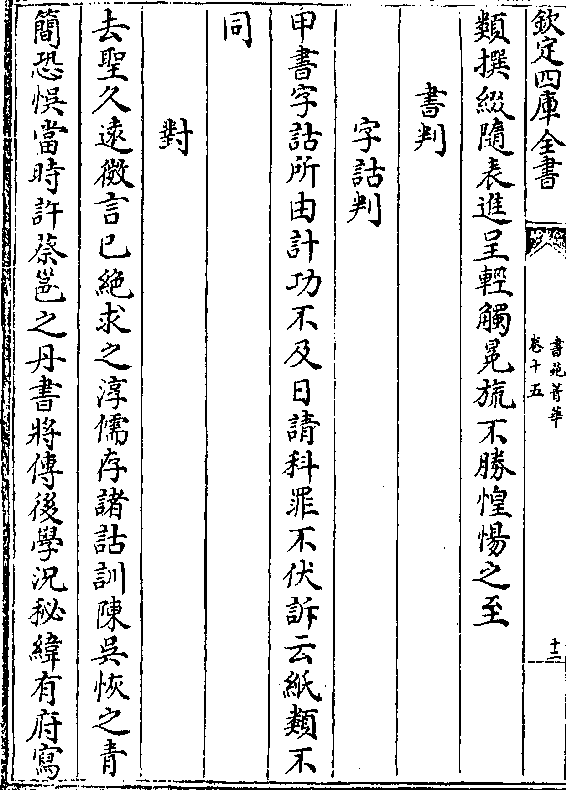 欽定四庫全書
書苑菁華
卷十五
十二
類撰綴隨表進呈輕觸冕旒不勝惶惕之至
書判
字詁判
申書字詁所由計功不及日請科罪不伏訴云紙類不
同
對
去聖久遠微言已絶求之淳儒存諸詁訓陳吳恢之青
簡恐悞當時許蔡邕之丹書將傳後學況秘緯有府寫